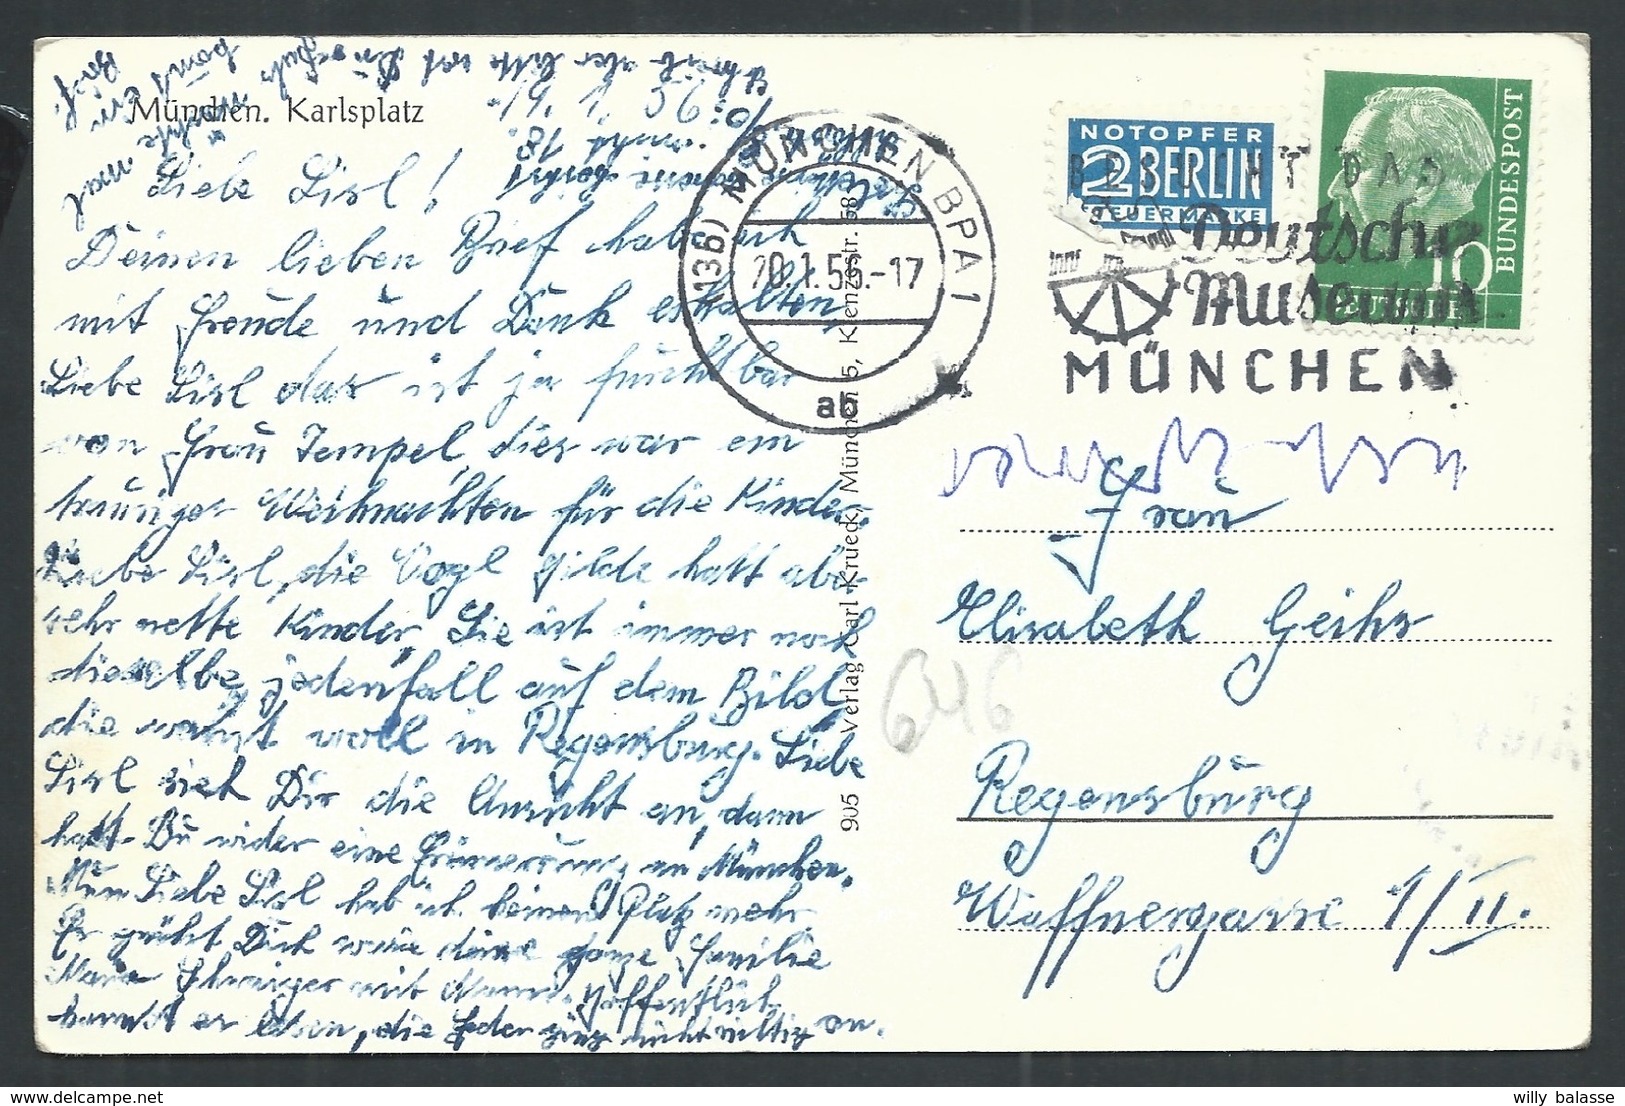 München. Karlsplatz
Liebe Lisl!
Deinen lieben Brief hab ich
mit Freude und Dank erhalten,
Liebe Lisl das ist ja furchtbar
von Frau Tempel, dies war ein
trauriger Weihnachten für die Kinder.
Liebe Lisl, die Vogl Hilde hatt aber
sehr nette Kinder, Sie ist immer noch
dieselbe jedenfall auf dem Bild,
die wohnt woll in Regensburg. Liebe
Lisl sieh Dir die Ansicht an, dann
hatt Du wider eine Erinnerung an München.
Nun Liebe Lisl hab ich keinen Platz mehr,
Es grüßt Dich sowie deine ganze Familie
Maria Schwaiger mit Mann. Hoffentlich
kannst es lesen, die Feder ging nicht richtig an.
NOTOPFER
2 BERLIN
STEUERMARKE
DEUTSCHE
BUNDESPOST
10
(13b) MÜNCHEN BPA 1
20.1.56.-17
ab
BESUCHT DAS
Deutsche
Museum
MÜNCHEN
905 Verlag Carl Krueck, München 5, Klenzestr. 58
Frau
Elisabeth Geihs
Regensburg
Waffnergasse 1/II.
646
willy balasse